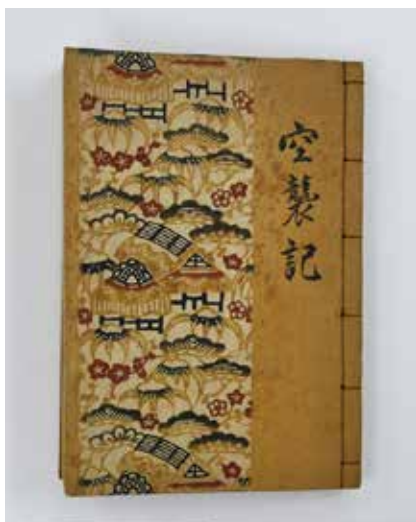 空襲記